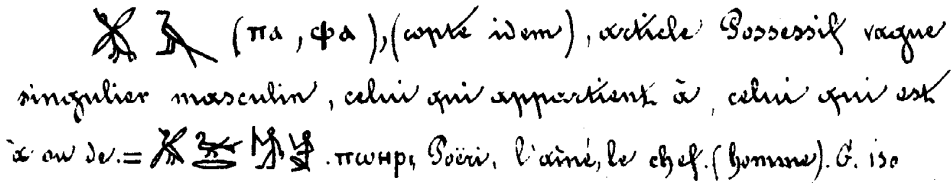 (ⲡⲁ, ⲫⲁ), (copte idem), article Possessif vague
singulier masculin, celui qui appartient à, celui qui est
à ou de. = . ⲡⲱⲏⲣⲓ, Poëri, l'aîné, le chef. (homme). G. 130